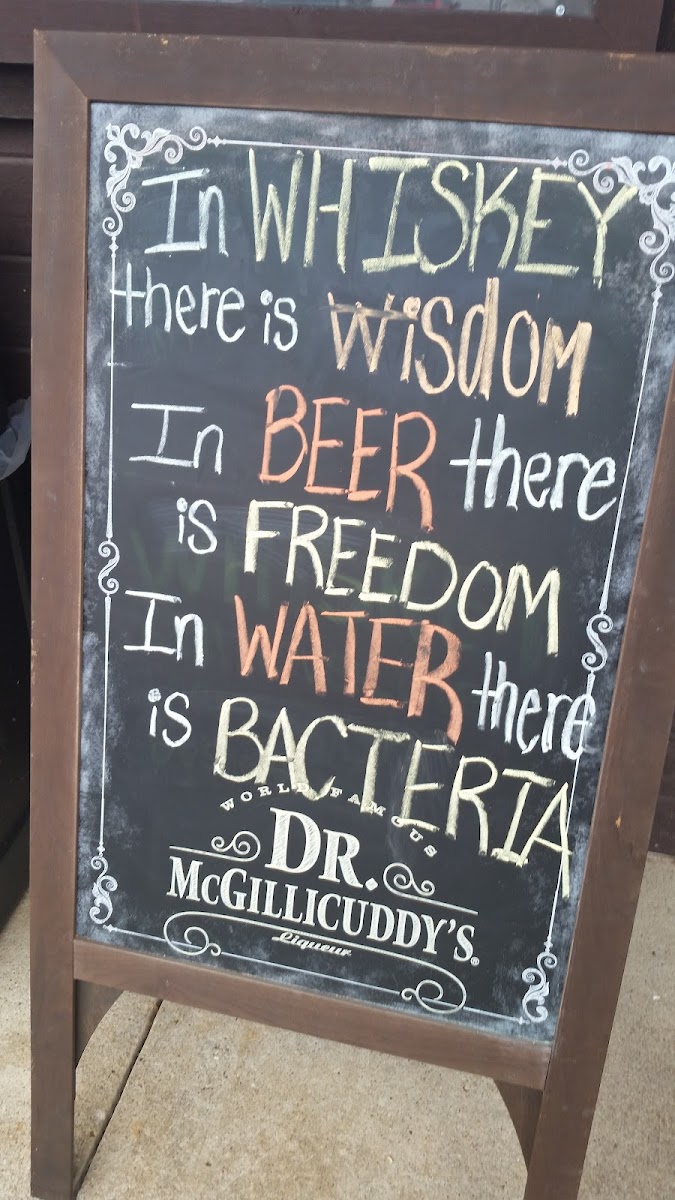 In WHISKEY
there is WisdOM
In BEER there
is FREEDOM
In WATER there
is BACTERIA
WORLD FAMOUS
DR.
MCGILLICUDDY'S®
Liqueur